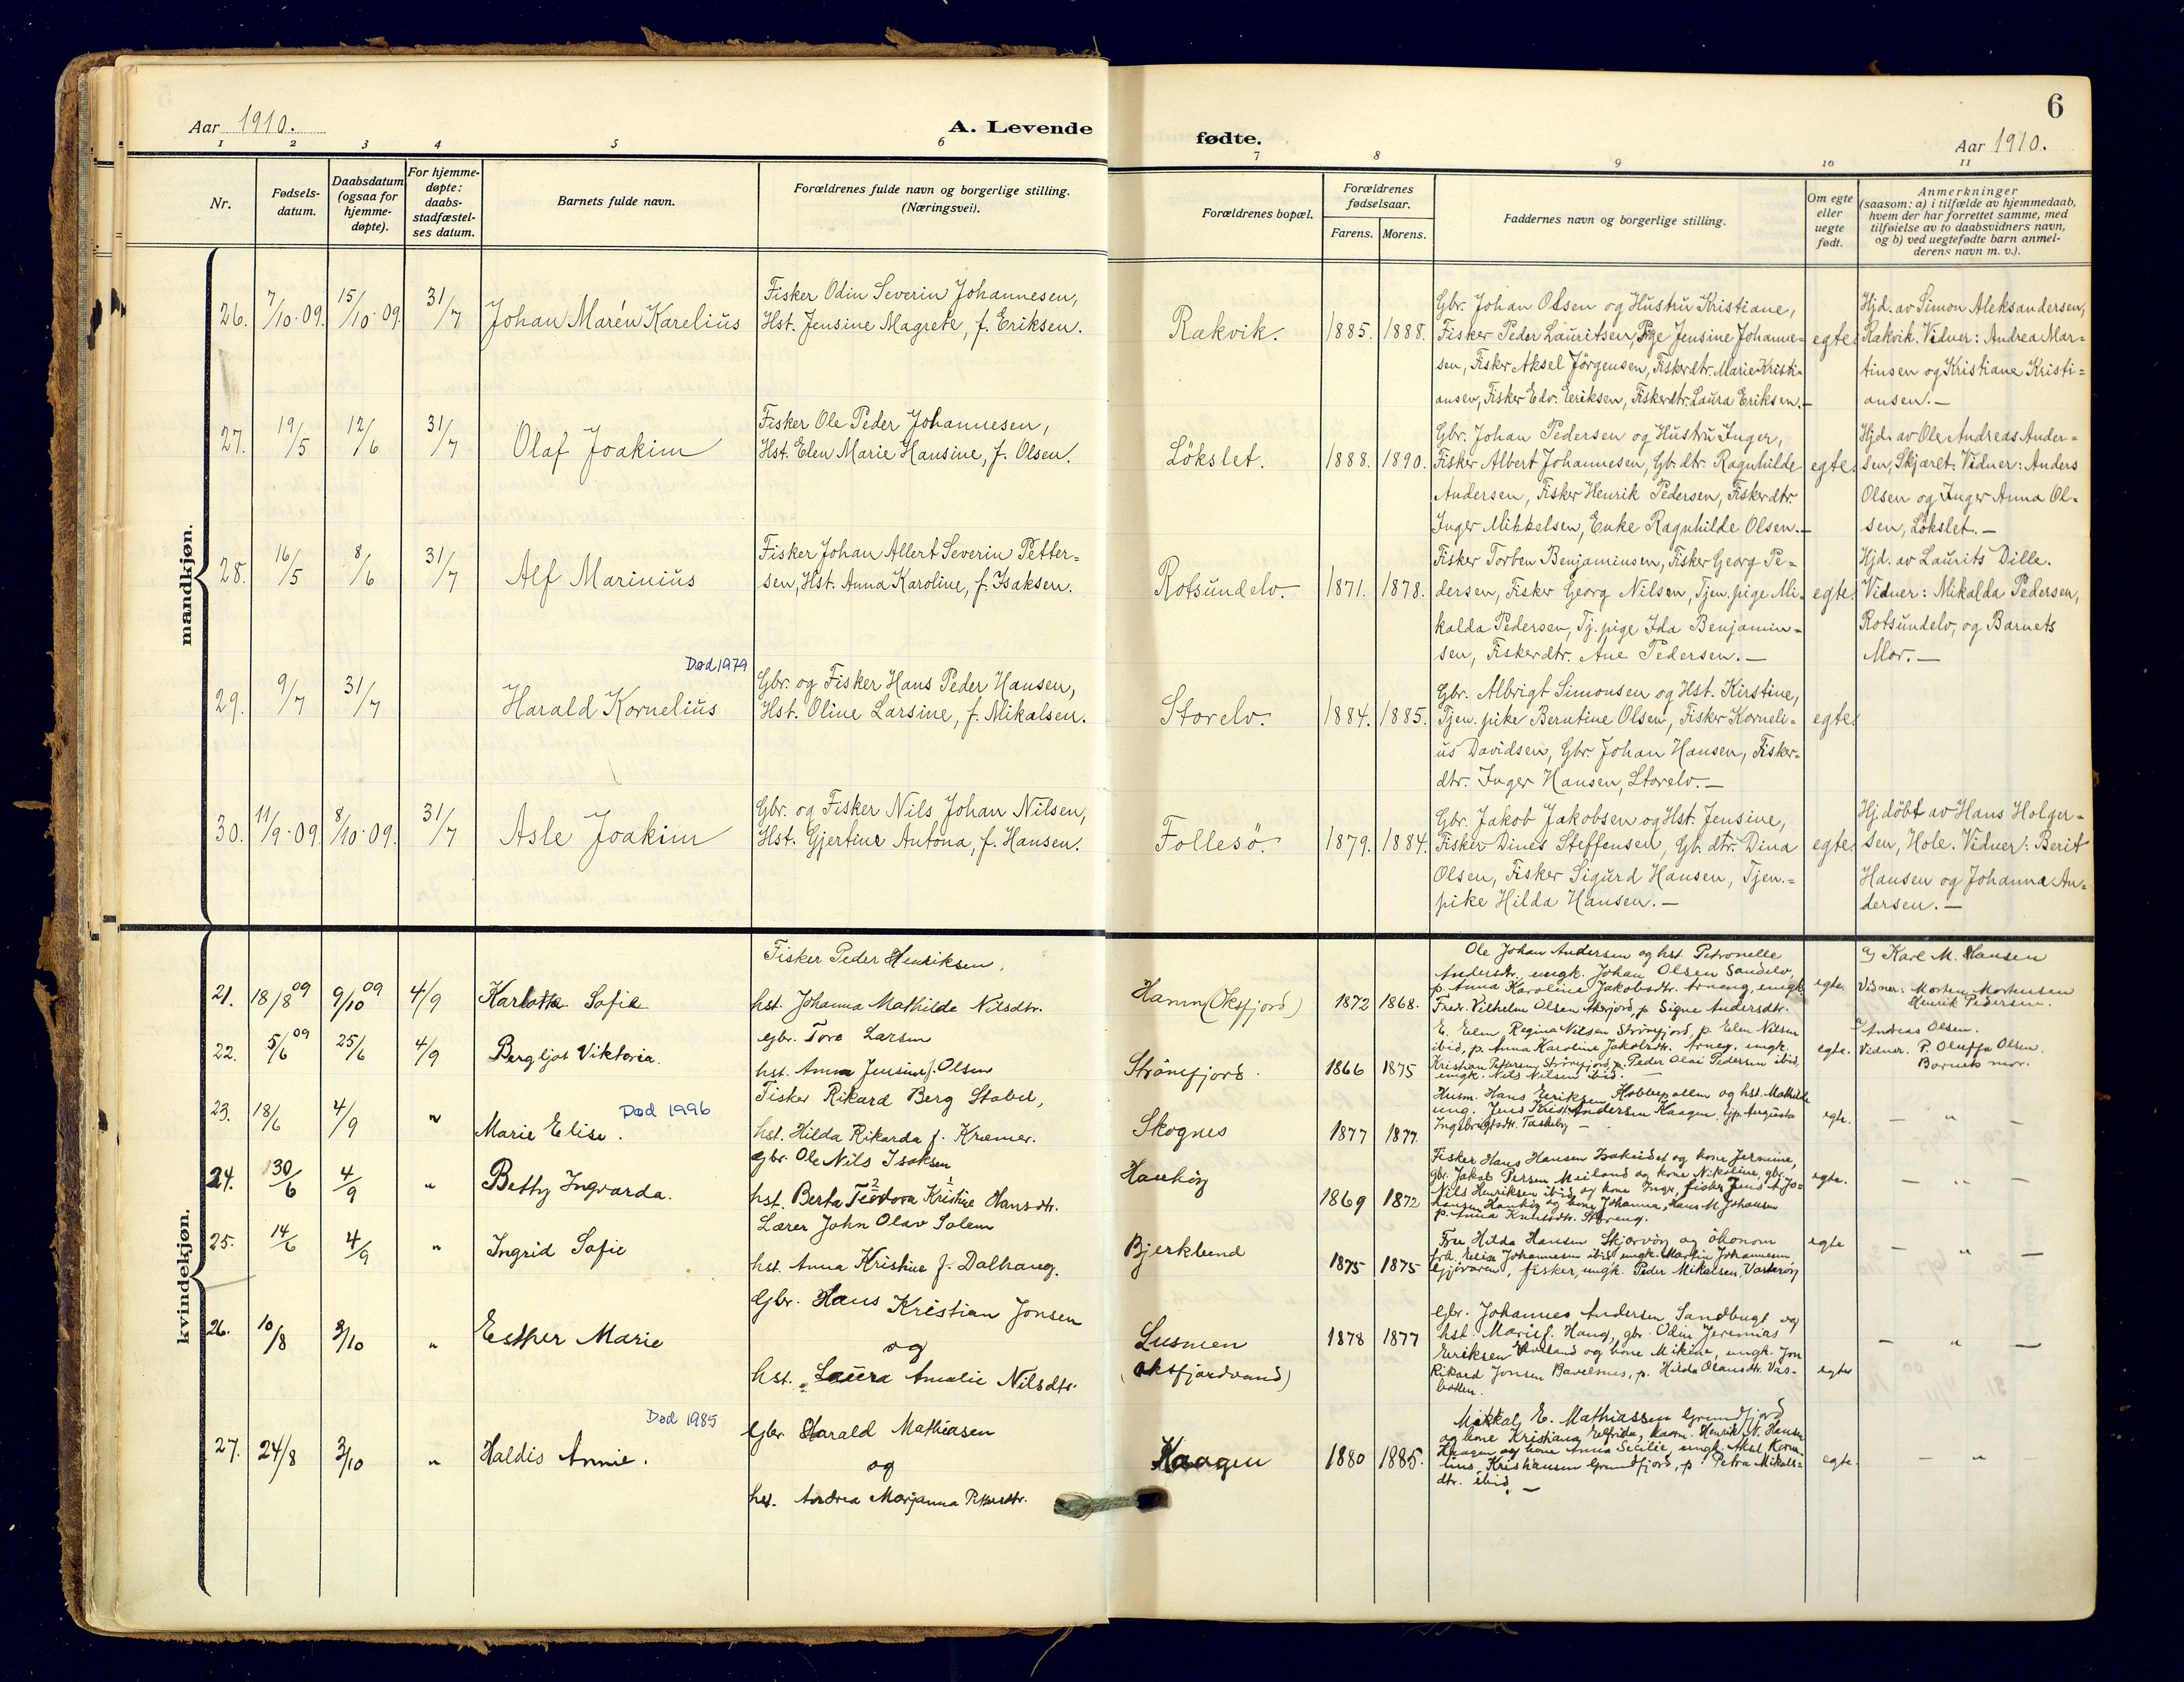 Aar 1910.
A. Levende
fødte.
6
Aar 1910.
1 2 3 4 5 6 7 8 9 10 11
Nr.
Fødsels-
datum.
Daabsdatum
(ogsaa for
hjemme-
døpte).
For hjemme-
døpte:
daabs-
stadfæstel-
ses datum.
Barnets fulde navn.
Forældrenes fulde navn og borgerlige stilling.
(Næringsvei).
Forældrenes bopæl.
Forældrenes
fødselsaar.
Farens. Morens.
Faddernes navn og borgerlige stilling.
Om egte
eller
uegte
født.
Anmerkninger
(saasom: a) i tilfælde av hjemmedaab,
hvem der har forrettet samme, med
tilføielse av to daabsvidners navn,
og b) ved uegtefødte barn anmel-
derens navn m. v.).
mandkjøn.
26. 7/10·09. 15/10·09. 31/7
Johan Marén Karelius
Fisker Odin Severin Johannesen,
Hst. Jensine Magrete, f. Eriksen.
Rækvik.
1885. 1888.
Gbr. Johan Olsen og Hustru Kristiane,
Fisker Peder Lauritsen, Pige Jensine Johanne-
sen, Fisker Aksel Jörgensen, Fiskerdtr. Marie Kristi-
ansen, Fisker Edv. Eeriksen, Fiskerdtr. Laura Eriksen.—
egte.
Hjd. av Simon Aleksandersen,
Rækvik. Vidner: Andrea Mar-
tinsen og Kristiane Kristi-
ansen.—
27. 19/5 12/6 31/7
Olaf Joakim
Fisker Ole Peder Johannesen,
Hst. Elen Marie Hansine, f. Olsen.
Lökslet.
1888. 1890.
Gbr. Johan Pedersen og Hustru Inger,
Fisker Albert Johannesen, Gb. dtr. Ragnhilde
Andersen, Fisker Henrik Pedersen, Fiskerdtr.
Inger Mikkelsen, Enke Ragnhilde Olsen.—
egte.
Hjd. av Ole Andreas Ander-
sen, Skjæret. Vidner: Anders
Olsen og Inger Anna Ol-
sen, Lökslet.—
28. 16/5 8/6 31/7
Alf Marinius
Fisker Johan Allert Severin Petter-
sen, Hst. Anna Karoline, f. Isaksen.
Rotsundelv.
1871. 1878.
Fisker Torben Benjaminsen, Fisker Georg Pe-
dersen, Fisker Georg Nilsen, Tjen. pige Mi-
kalda Pedersen, Tj. pige Ida Benjamin-
sen, Fiskerdtr. Ane Pedersen.—
egte.
Hjd. av Laurits Dille.
Vidner: Mikalda Pedersen,
Rotsundelv, og Barnets
Mor.—
29. 9/7 31/7
Død 1979
Harald Kornelius
Gbr. og Fisker Hans Peder Hansen,
Hst. Oline Larsine, f. Mikalsen.
Storelv.
1884. 1885.
Gbr. Albrigt Simonsen og Hst. Kirstine,
Tjen. pike Berntine Olsen, Fisker Korneli-
us Davidsen, Gbr. Johan Hansen, Fisker-
dtr. Inger Hansen, Storelv.—
egte.
30. 11/9·09. 8/10·09. 31/7
Asle Joakim
Gbr. og Fisker Nils Johan Nilsen,
Hst. Gjertine Antona, f. Hansen.
Follesö.
1879. 1884.
Gbr. Jakob Jakobsen og Hst. Jensine,
Fisker Dines Steffensen, Gb. dtr. Dina
Olsen, Fisker Sigurd Hansen, Tjen.-
pike Hilda Hansen.—
egte.
Hj. döbt av Hans Holger-
sen, Hole. Vidner: Berit
Hansen og Johanna An-
dersen.—
kvindekjøn.
21. 18/8 09 9/10 09 4/9
Karlotte Sofie
Fisker Peder Henriksen,
hst. Johanna Mathilde Nilsdtr.
Hamn (Oksfjord)
1872 1868.
Ole Johan Andersen og hst. Petronelle
Andersdtr., ungk. Johan Olsen Sandelv,
p. Anna Karoline Jakobsdtr. Arneng, ungk.
Fredr. Vilhelm Olsen, p. Signe Andersdtr.
egte.
a) Karl M. Hansen
Vidner: Morten Mortensen
Henrik Pedersen.
22. 5/6 09 25/6 4/9
Bergljot Viktoria.
gbr. Tore Larsen
hst. Anna Jensine f. Olsen
Strömfjord.
1866 1875
E. Elen, Regina Nilsen Strömfjord, p. Elen Nilsen
ibid, p. Anna Karoline Jakobsdtr. Arneng, ungk.
Kristian Pettersen Strömfjord, p. Peder Olai Pedersen ibid,
ungk. Nils Nilsen ibid.—
egte.
a) Andreas Olsen.
Vidner. P. Oluffa Olsen.
Barnets mor.
23. 18/6 4/9 "
Død 1996
Marie Elise.
Fisker Rikard Berg Stabel,
hst. Hilda Rikarda f. Kræmer.
Skognes
1877 1877
Husm. Hans Eeriksen Kobbepollen og hst. Mathilde
ung. Jens Krist. Andersen Kaagen, tjp. Augusta
Ingebrigtsdtr. Taskeby —
egte.
— " —
24. 30/6 4/9 "
Betty Ingvarda.
gbr. Ole Nils Isaksen
hst. Berta Teodora Kristine Hansdtr.
Hauköy
1869 1872
Fisker Hans Hansen Isakeidet og kone Jermine,
gbr. Jakob Persen Meiland og kone Nikoline, gbr.
Nils Henriksen ibid og kone Inger, fisker Jens A. Jo-
hansen Hauköy og kone Johanna, Hans M. Johansen
p. Anna Knutsdtr. Storeng.
egte.
— " —
25. 14/6 4/9 "
Ingrid Sofie
Lærer John Olav Solem
hst. Anna Kristine f. Dalhaug.
Bjerklund
1875 1875
Fru Hilda Hansen Skjærvöy og ökonom
frk. Elise Johannesen ibid, ungk. Martin Johannesen
Gjövaren, fisker, ungk. Peder Mikalsen, Vorteröy
egte
— " —
26. 10/8 2/10 "
Esther Marie
Gbr. Hans Kristian Jonsen
og
hst. Laura Amalie Nilsdtr.
Lusmen
(Oksfjordvand)
1878 1877
Gbr. Johannes Andersen Sandbugt og
hst. Marie f. Haug, gbr. Odin Jeremias
Eeriksen og kone Mikine, ungk. Jon
Rikard Jonsen Bavelsnes, p. Hilda Olausdtr. Vas-
botten.
egte
— " —
27. 24/8 2/10 "
Død 1985
Haldis Annie.
Gbr. Harald Mathiasen
og
hst. Andrea Marjanna Pettersdtr.
Kaagen
1880 1885.
Mikkal E. Mathiassen Grunfjord
og kone Kristiana Elfrida, Henrik N. Hansen
Kaagen og kone Anna Secilie, ungk. Aksel Korne-
lius Kristiansen Grunfjord, p. Petra Mikals-
dtr. ibid.—
egte.
— " —